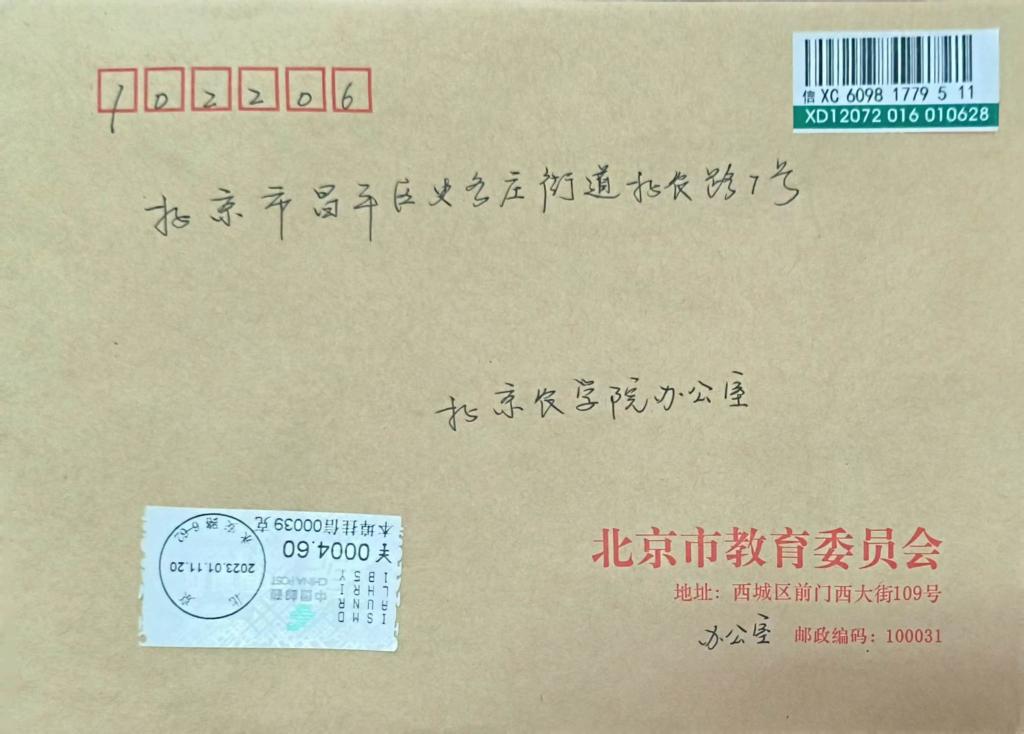 102206
信 XC 6098 1779 5 11
XD12072 016 010628
北京市昌平区史各庄街道北农路7号
北京农学院办公室
本埠挂信00039克
¥0004.60
中国邮政
CHINA POST
永安路6-62
2023.01.11.20
北京
ISMD
AUNR
LHRI
IBSY
北京市教育委员会
地址：西城区前门西大街109号
办公室 邮政编码：100031